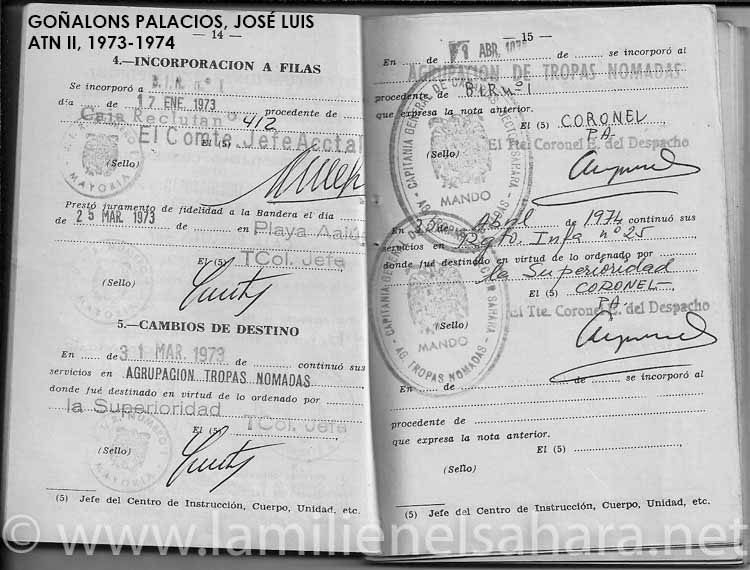 GOÑALONS PALACIOS, JOSÉ LUIS
ATN II, 1973-1974
— 14 —
4.—INCORPORACION A FILAS
Se incorporó a B.I.R. nº 1
día de 17 ENE. 1973 procedente de
Caja Reclutan º 412
El Comte. Jefe Acctal
El (5)
(Sello)
MAYORIA
Prestó juramento de fidelidad a la Bandera el día
de 25 MAR. 1973 de en Playa
El (5) TCol. Jefe
(Sello)
5.—CAMBIOS DE DESTINO
En de 31 MAR. 1973 de continuó sus
servicios en AGRUPACION TROPAS NOMADAS
donde fué destinado en virtud de lo ordenado por
la Superioridad
El (5) TCol. Jefe
(Sello)
MAYORIA
(5) Jefe del Centro de Instrucción, Cuerpo, Unidad, etc.
— 15 —
En de 1 ABR. de se incorporó al
AGRUPACION DE TROPAS NOMADAS
procedente de BIR nº 1
que expresa la nota anterior.
El (5) CORONEL
PA
El Tte. Coronel E. del Despacho
(Sello)
CAPITANIA GENERAL DE CANARIAS
SECTOR SAHARA
MANDO
En de Abril de 1974 continuó sus
servicios en Rgto. Infa nº 25
donde fué destinado en virtud de lo ordenado por
la Superioridad
El (5) CORONEL
PA
El Tte. Coronel E. del Despacho
(Sello)
MANDO
AG TROPAS NOMADAS
En de de se incorporó al
procedente de
que expresa la nota anterior.
El (5)
(Sello)
(5) Jefe del Centro de Instrucción, Cuerpo, Unidad, etc.
© www.lamilienelsahara.net